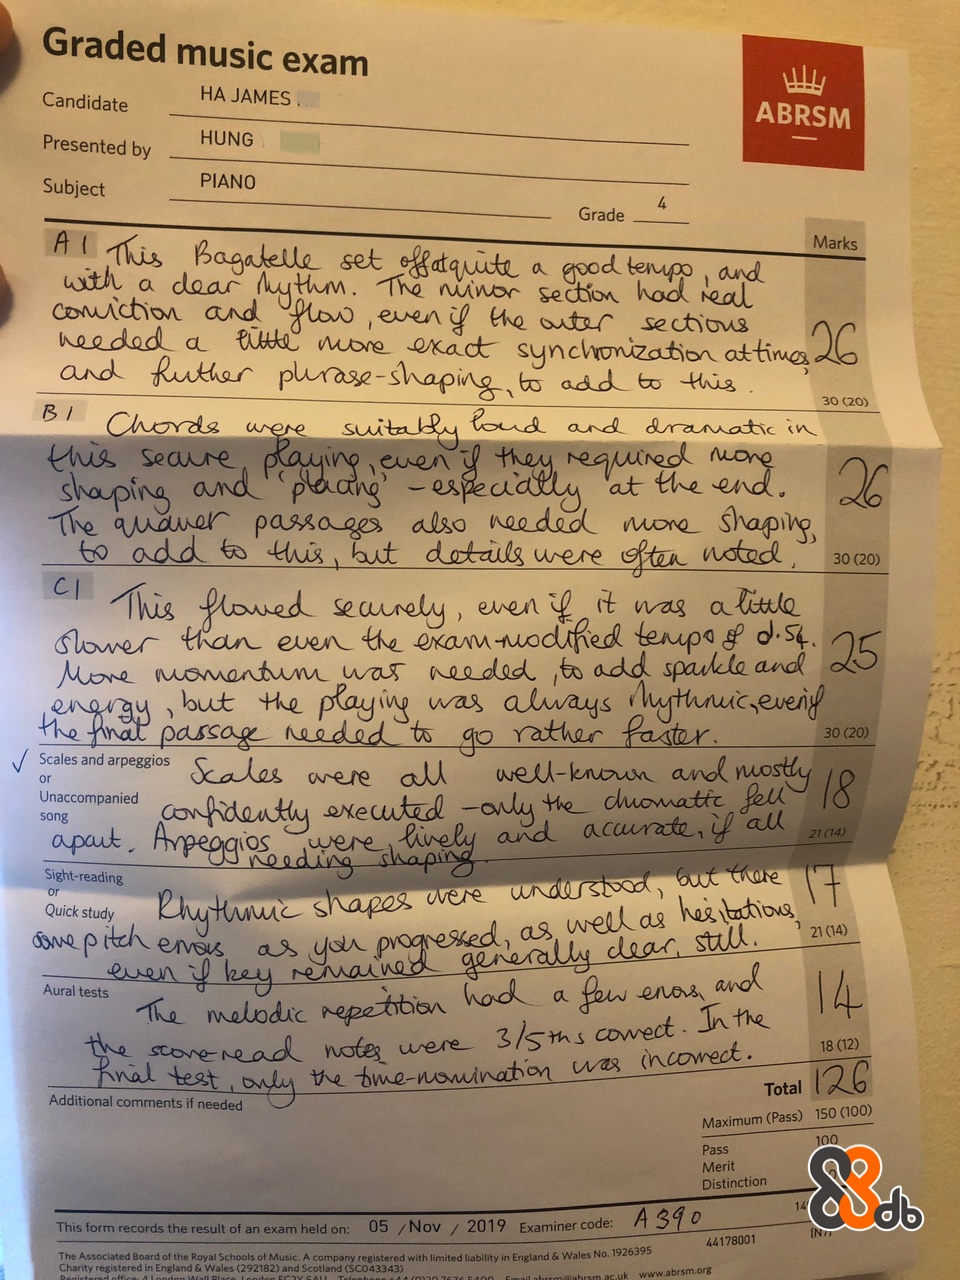 Graded music exam
ABRSM
Candidate HA JAMES
Presented by HUNG
Subject PIANO
Grade 4
Marks
A1 This Bagatelle set off at quite a good tempo, and
with a clear rhythm. The minor section had real
conviction and flow, even if the outer sections
needed a little more exact synchronization at times, 26
and further phrase-shaping, to add to this.
30 (20)
B1 Chords were suitably loud and dramatic in
this secure playing, even if they required more
shaping and 'placing' – especially at the end. 26
The quaver passages also needed more shaping,
to add to this, but details were often noted.
30 (20)
C1 This flowed securely, even if it was a little
slower than even the exam-modified tempo of d.54.
More momentum was needed, to add sparkle and 25
energy, but the playing was always rhythmic, even if
the final passage needed to go rather faster.
30 (20)
✓ Scales and arpeggios
or
Unaccompanied
song
Scales were all well-known and mostly 18
confidently executed – only the chromatic fell
apart. Arpeggios were lively and accurate, if all
needing shaping.
21 (14)
Sight-reading
or
Quick study
Rhythmic shapes were understood, but there 17
some pitch errors as you progressed, as well as hesitations,
even if key remained generally clear, still.
21 (14)
Aural tests
The melodic repetition had a few errors, and 14
the score-read notes were 3/5ths correct. In the
final test, only the time-nomination was incorrect.
18 (12)
Additional comments if needed
Total 126
Maximum (Pass) 150 (100)
Pass 100
Merit
Distinction
This form records the result of an exam held on: 05 / Nov / 2019 Examiner code: A390
44178001
The Associated Board of the Royal Schools of Music. A company registered with limited liability in England & Wales No. 1926395
Charity registered in England & Wales (292182) and Scotland (SC043343)
www.abrsm.org
88db